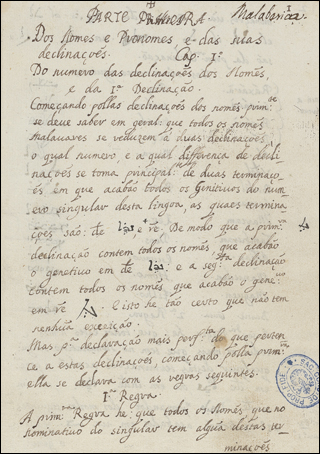 PARTE PRIMEIRA. Malabarica
Dos Nomes e Pronomes e das suas
declinações. Cap. Iº
Do numero das declinações dos Nomes,
e da Iª Declinação.
Começando pollas declinações dos nomes prim.
se deve saber em geral: que todos os nomes
malavares se reduzem á duas declinações,
o qual numero, e a qual differença de decli
nações se toma principal.te de duas terminaçõ
es em que acabão todos os genitivos do num
ero singular desta lingoa, as quaes termina
ções são: de e re. De modo que a prim.ra
declinação contem todos os nomes que acabão
o genetivo em de e a seg.da declinação
contem todos os nomes, que acabão o gene
em re E isto he tão certo que não tem
nenhũa exceição.
Mas p.ª declaração mais perf.ta do que perten
ce a estas declinações começando polla prim.ra
ella se declara com as regras seguintes.
Iª Regra
A prim.ra Regra he: que todos os Nomes, que no
nominativo do singular tem algũa destas ter
minações